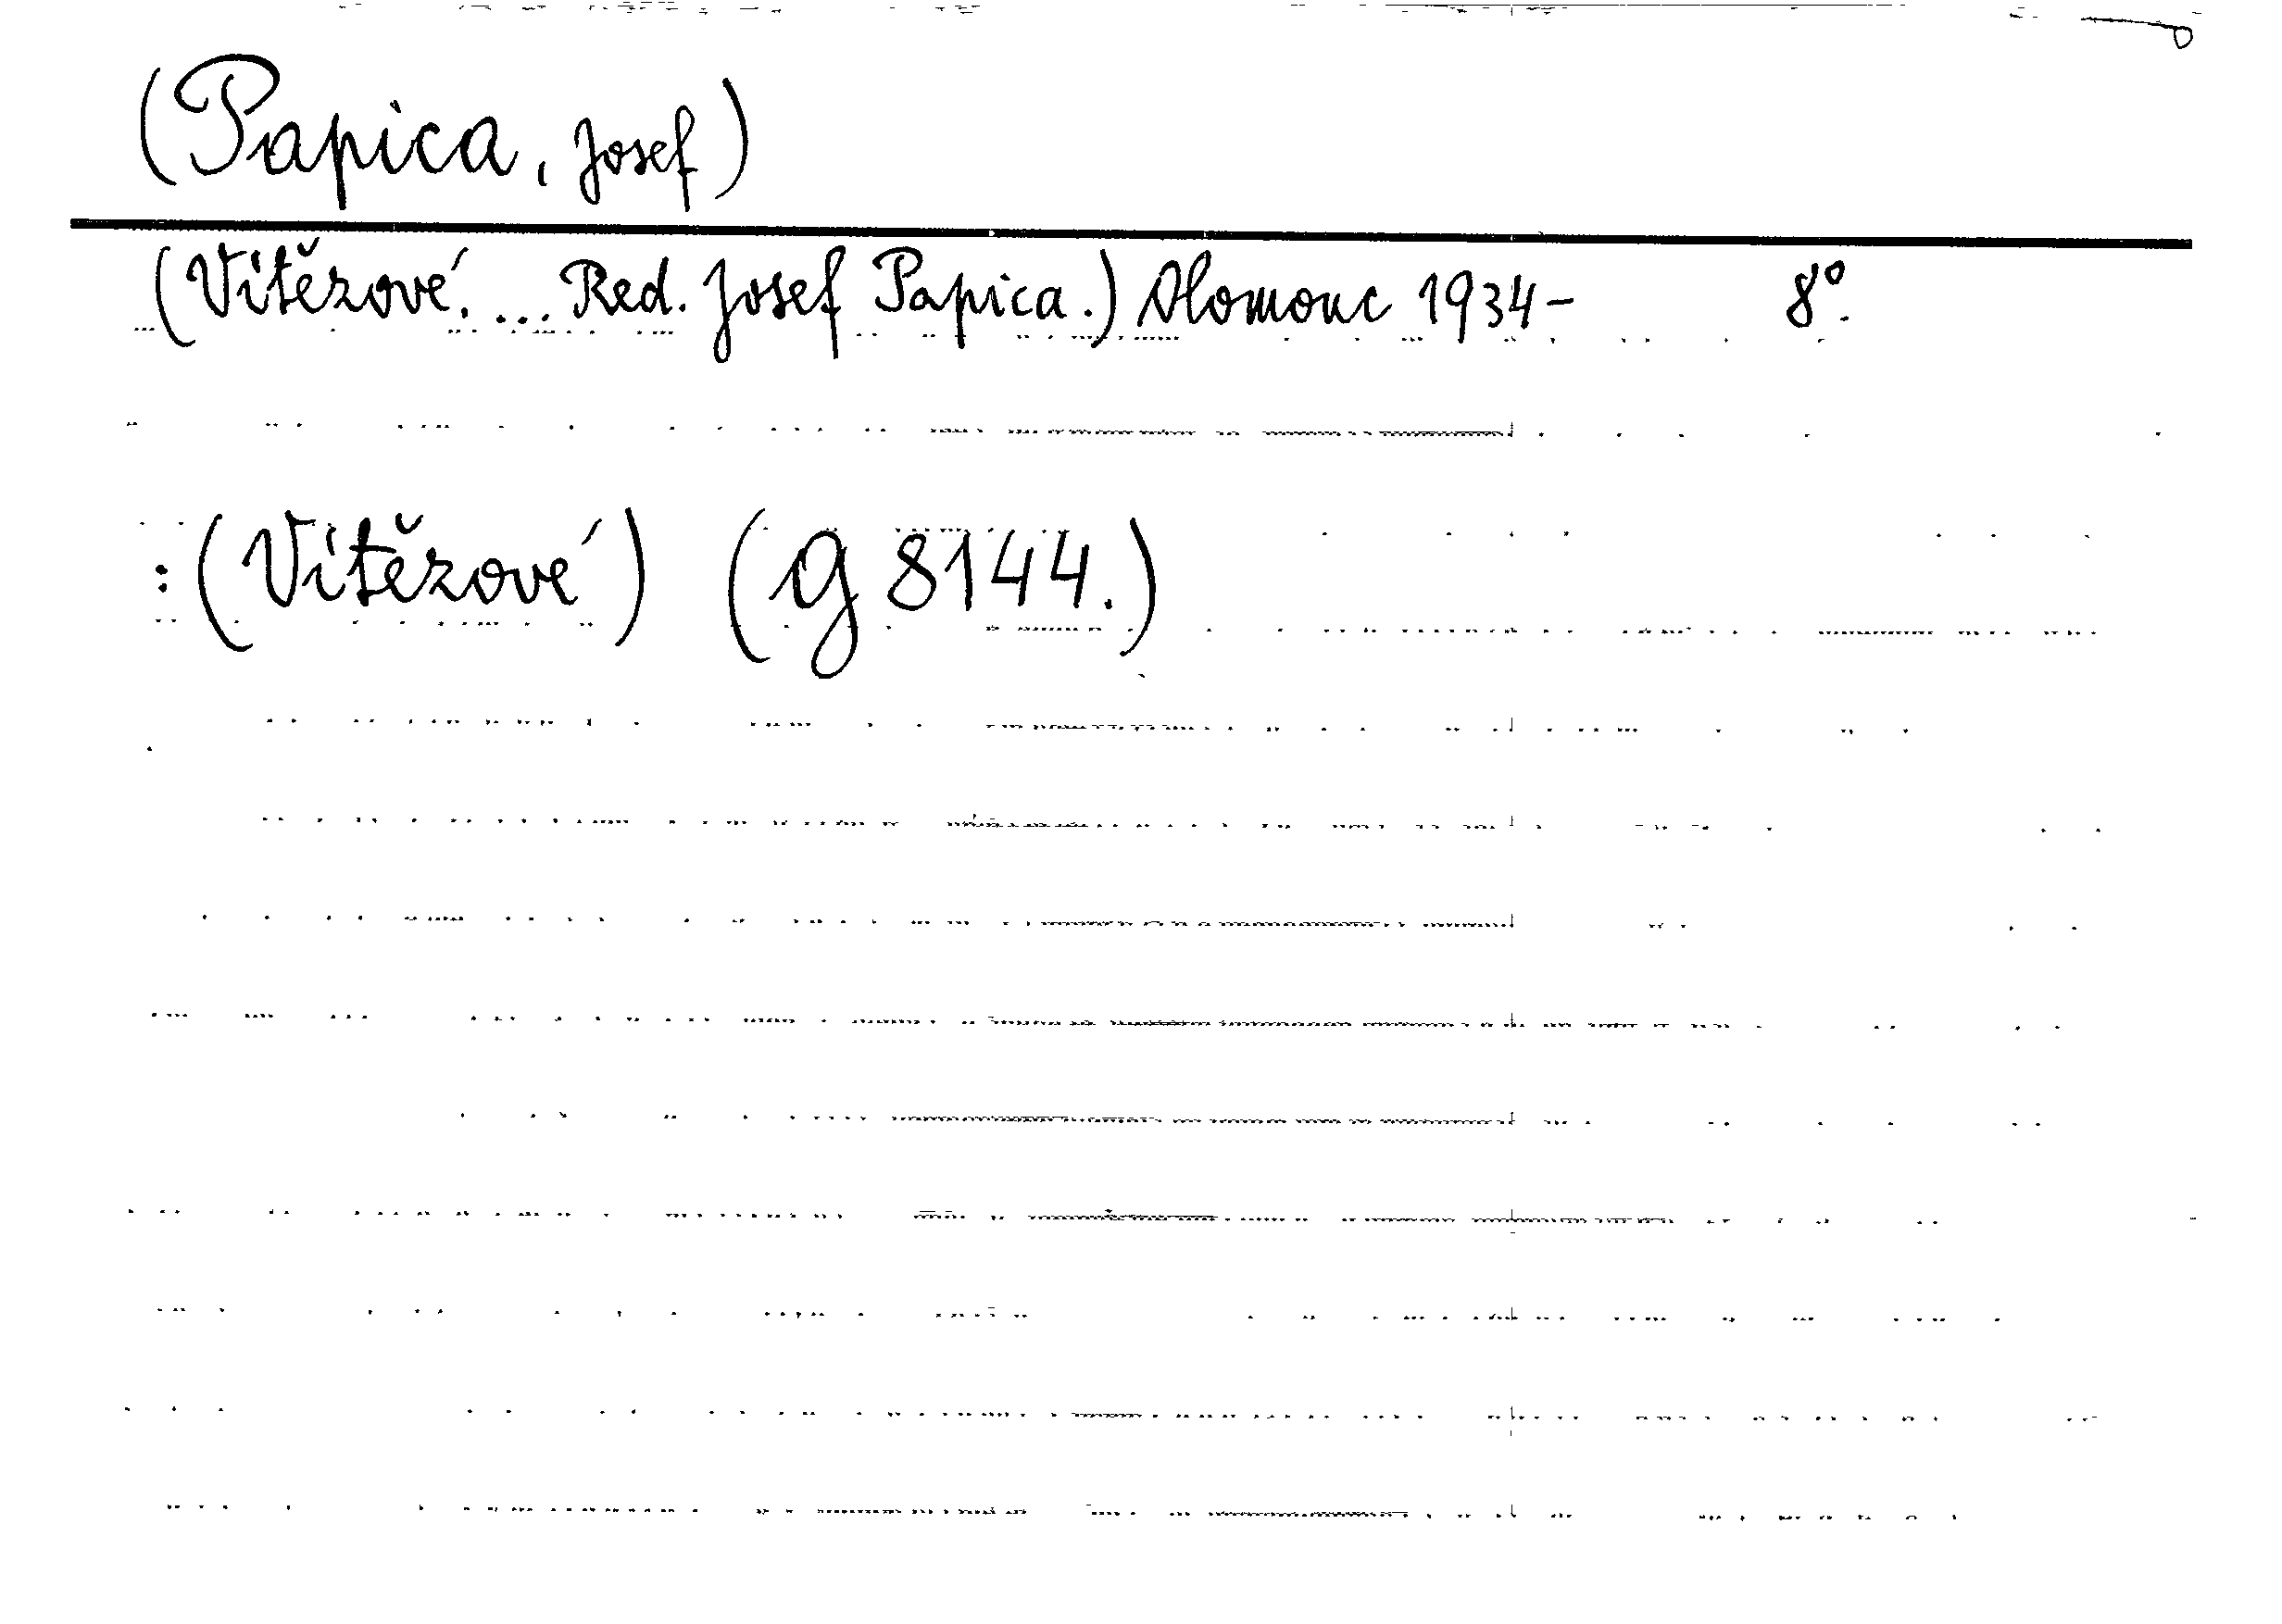 (Papica, Josef)
(Vítězové. ... Red. Josef Papica.) Olomouc 1934- 8°.
: (Vítězové) (g 8144.)